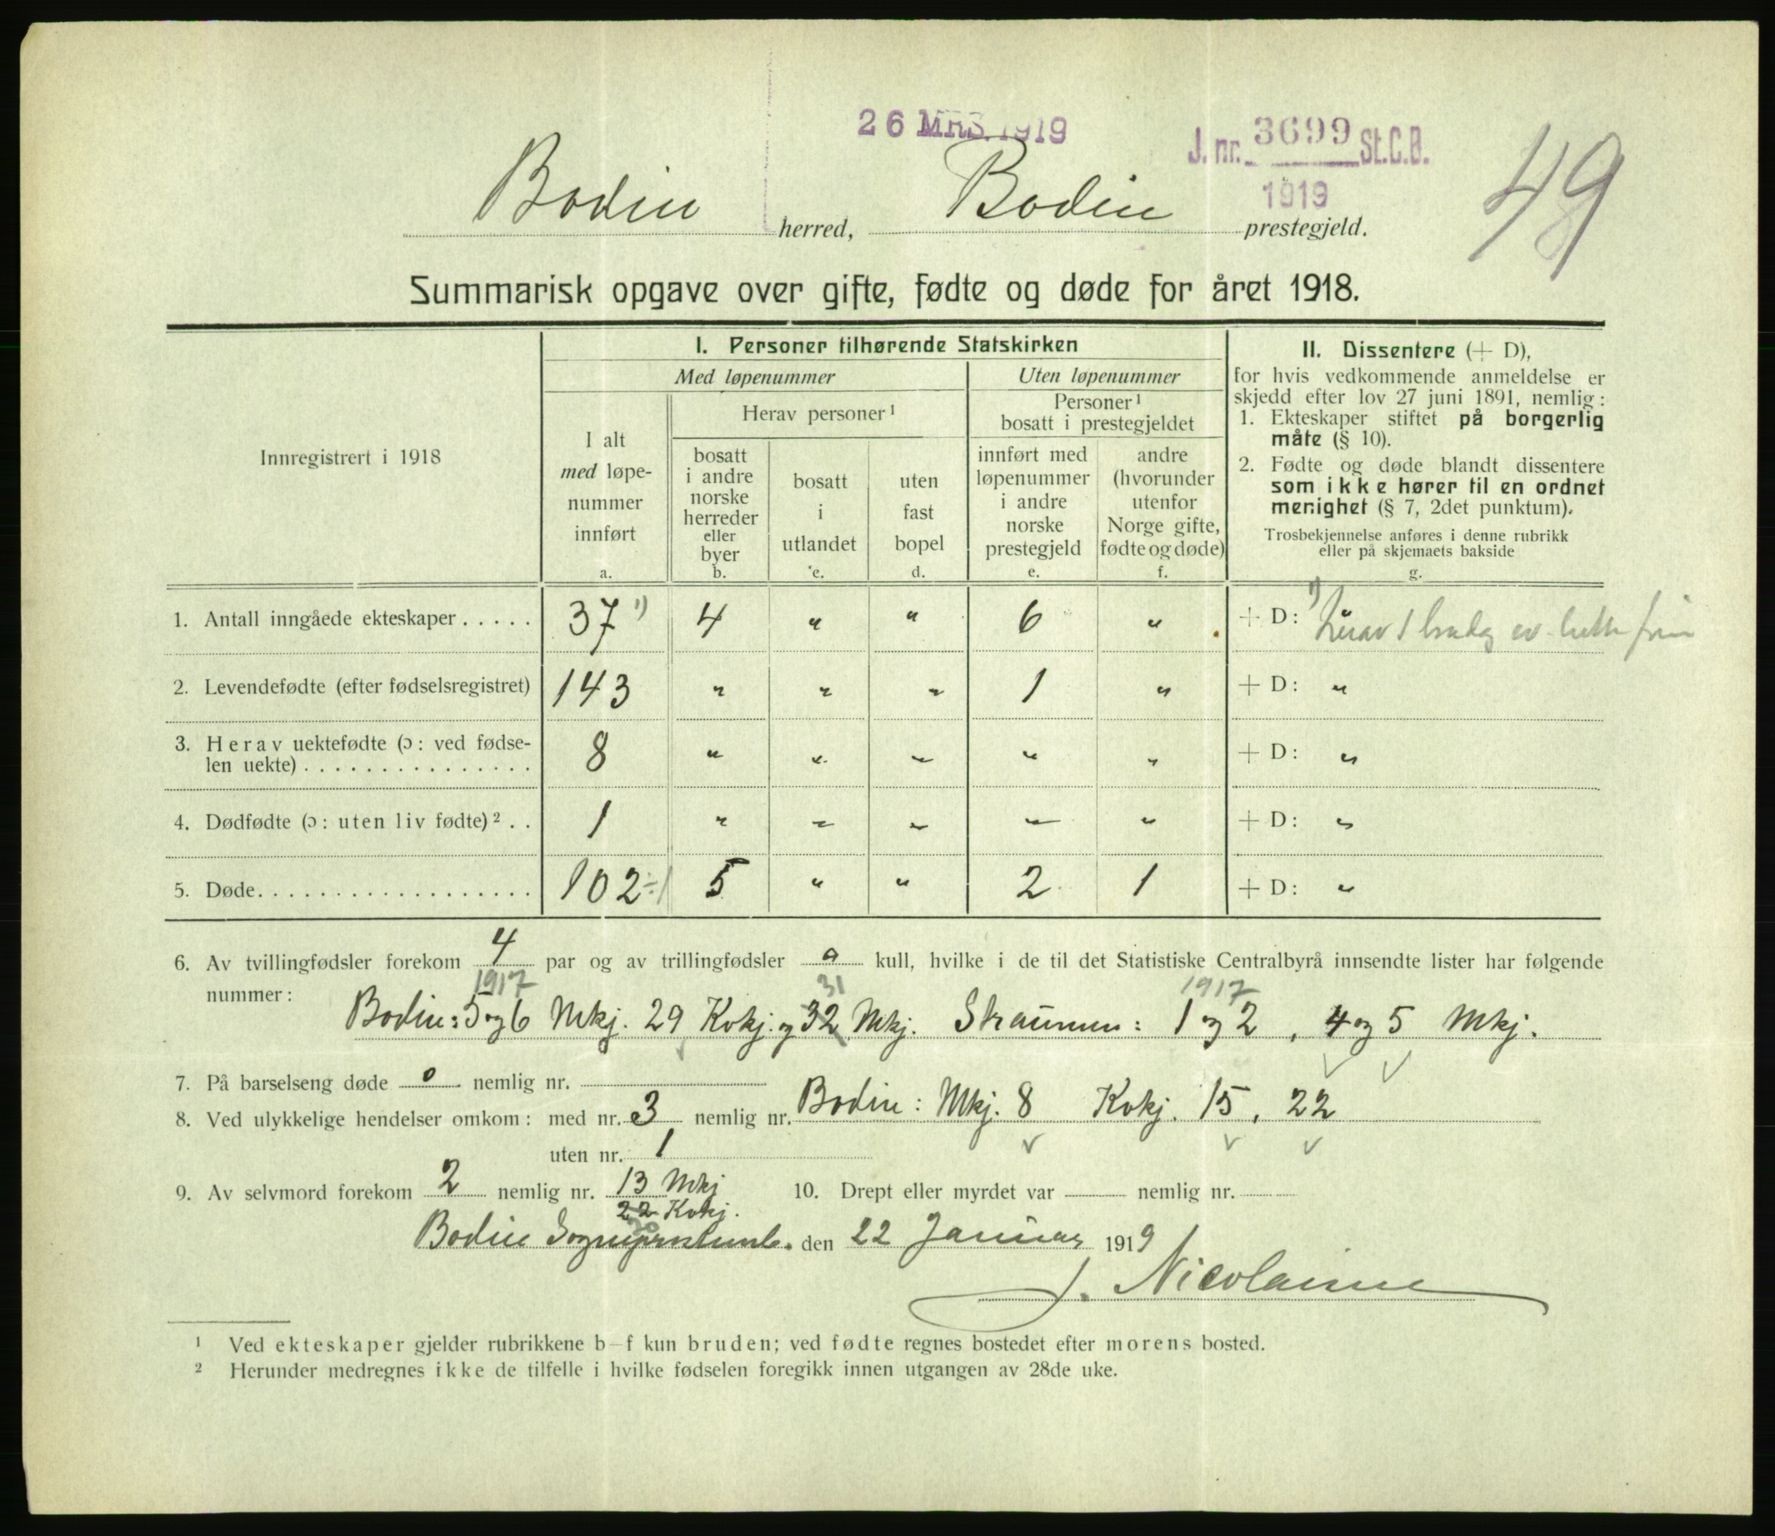 26 MRS. 1919
J. nr. 3699 St.C.B.
1919
49
Bodin herred, Bodin prestegjeld.
Summarisk opgave over gifte, fødte og døde for året 1918.
Innregistrert i 1918
I. Personer tilhørende Statskirken
Med løpenummer
Uten løpenummer
I alt
med løpe-
nummer
innført
a.
Herav personer ¹
bosatt
i andre
norske
herreder
eller
byer
b.
bosatt
i
utlandet
c.
uten
fast
bopel
d.
Personer ¹
bosatt i prestegjeldet
innført med
løpenummer
i andre
norske
prestegjeld
e.
andre
(hvorunder
utenfor
Norge gifte,
fødte og døde)
f.
II. Dissentere (+ D),
for hvis vedkommende anmeldelse er
skjedd efter lov 27 juni 1891, nemlig:
1. Ekteskaper stiftet på borgerlig
måte (§ 10).
2. Fødte og døde blandt dissentere
som ikke hører til en ordnet
menighet (§ 7, 2det punktum).
Trosbekjennelse anføres i denne rubrikk
eller på skjemaets bakside
g.
1. Antall inngåede ekteskaper . . . . . 37 ¹) 4 " " 6 " + D: ¹) herav 1
2. Levendefødte (efter fødselsregistret) 143 " " " 1 " + D: "
3. Herav uektefødte (ɔ: ved fødse-
len uekte) . . . . . . . . . . . . . . . 8 " " " " " + D: "
4. Dødfødte (ɔ: uten liv fødte) ² . . 1 " " " " " + D: "
5. Døde. . . . . . . . . . . . . . . . . . 102 ÷1 5 " " 2 1 + D: "
6. Av tvillingfødsler forekom 4 par og av trillingfødsler 0 kull, hvilke i de til det Statistiske Centralbyrå innsendte lister har følgende
nummer: 1917 31 1917
Bodin: 5 og 6 Mkj. 29 Kvkj. og 32 Mkj. Straumen: 1 og 2, 4 og 5 Mkj.
7. På barselseng døde 0 nemlig nr.
8. Ved ulykkelige hendelser omkom: med nr. 3 nemlig nr. Bodin: Mkj. 8 Kvkj. 15, 22
uten nr. 1
9. Av selvmord forekom 2 nemlig nr. 13 Mkj 10. Drept eller myrdet var — nemlig nr.
22 Kvkj.
20
Bodin Sogneprestemb. den 22 Januar 1919
J. Nicolaisen
¹ Ved ekteskaper gjelder rubrikkene b–f kun bruden; ved fødte regnes bostedet efter morens bosted.
² Herunder medregnes ikke de tilfelle i hvilke fødselen foregikk innen utgangen av 28de uke.